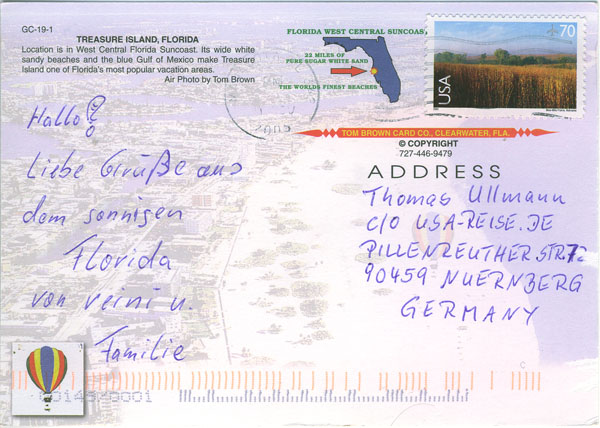 GC-19-1
TREASURE ISLAND, FLORIDA
Location is in West Central Florida Suncoast. Its wide white
sandy beaches and the blue Gulf of Mexico make Treasure
Island one of Florida's most popular vacation areas.
Air Photo by Tom Brown
FLORIDA WEST CENTRAL SUNCOAST
22 MILES OF
PURE SUGAR WHITE SAND
THE WORLDS FINEST BEACHES
70
USA
2005
TOM BROWN CARD CO., CLEARWATER, FLA.
© COPYRIGHT
727-446-9479
Hallo!
Liebe Grüße aus
dem sonnigen
Florida
von reini u.
Familie
ADDRESS
Thomas Ullmann
C/O USA-REISE.DE
PILLENREUTHER STR.
90459 NUERNBERG
GERMANY